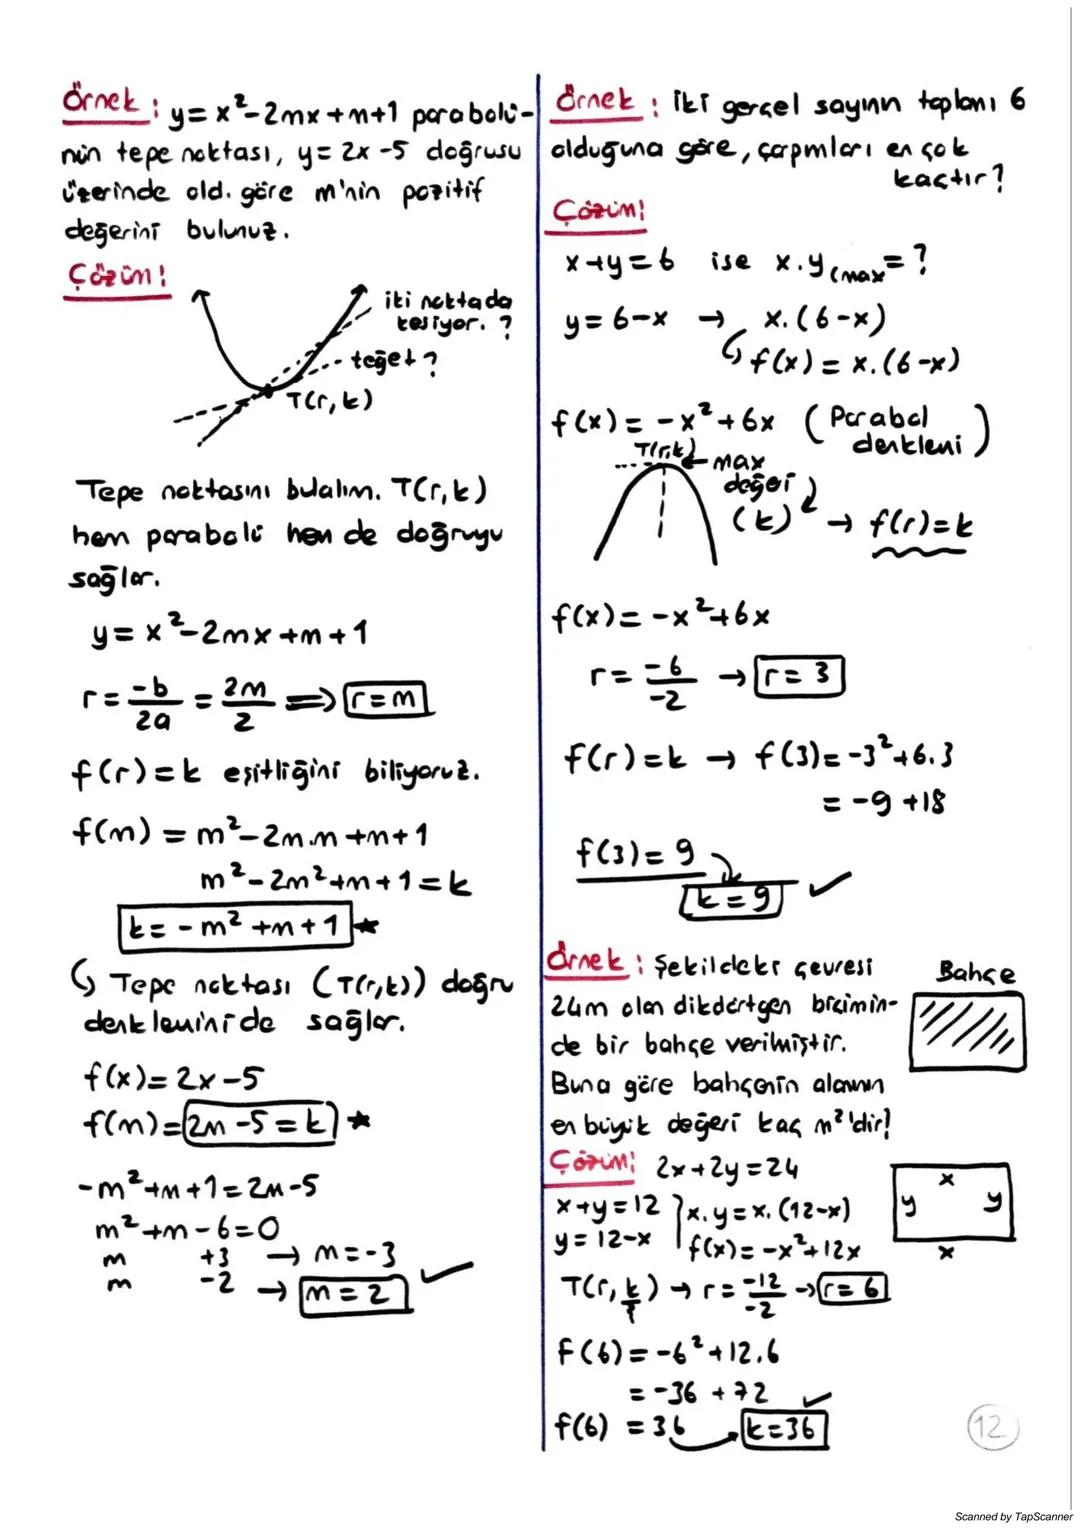 Örnek : y = x² - 2mx + m + 1 parabolü-
nün tepe noktası, y = 2x - 5 doğrusu
üzerinde old. göre m'nin pozitif
değerini bulunuz.
Çözüm:
iki noktada
kesiyor. ?
teğet ?
T(r, k)
Tepe noktasını bulalım. T(r, k)
hem parabolü hem de doğruyu
sağlar.
y = x² - 2mx + m + 1
r = -b/2a = 2m/2 ⟹ r = m
f(r) = k eşitliğini biliyoruz.
f(m) = m² - 2m.m + m + 1
m² - 2m² + m + 1 = k
k = -m² + m + 1 ★
↳ Tepe noktası (T(r,k)) doğru
denklemini de sağlar.
f(x) = 2x - 5
f(m) = 2m - 5 = k ★
-m² + m + 1 = 2m - 5
m² + m - 6 = 0
m +3 → m = -3
m -2 → m = 2 ✓
Örnek : İki gerçel sayının toplamı 6
olduğuna göre, çarpımları en çok
kaçtır?
Çözüm:
x + y = 6 ise x.y (max = ?
y = 6 - x → x.(6-x)
↳ f(x) = x.(6-x)
f(x) = -x² + 6x (Parabol
denklemi)
T(r,k) ← max
değeri
(k) → f(r) = k
f(x) = -x² + 6x
r = -6/-2 → r = 3
f(r) = k → f(3) = -3² + 6.3
= -9 + 18
f(3) = 9
k = 9 ✓
Örnek : Şekildeki çevresi
24m olan dikdörtgen biçimin-
de bir bahçe verilmiştir.
Buna göre bahçenin alanının
en büyük değeri kaç m²'dir?
Bahçe
Çözüm: 2x + 2y = 24
x + y = 12 } x.y = x.(12-x)
y = 12 - x f(x) = -x² + 12x
x
y y
x
T(r, k) → r = -12/-2 → r = 6
↑
f(6) = -6² + 12.6
= -36 + 72 ✓
f(6) = 36 → k = 36
12
Scanned by TapScanner